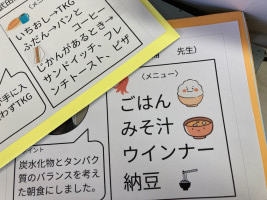 いちおし→TKG
ふだん→パンと
コーヒー
じかんがあるとき→
サンドイッチ、フレ
ンチトースト、ピザ
手に入
わずTKG
先生)
〈メニュー〉
ごはん
みそ汁
ウインナー
納豆
イント
炭水化物とタンパク
質のバランスを考え
た朝食にしました。